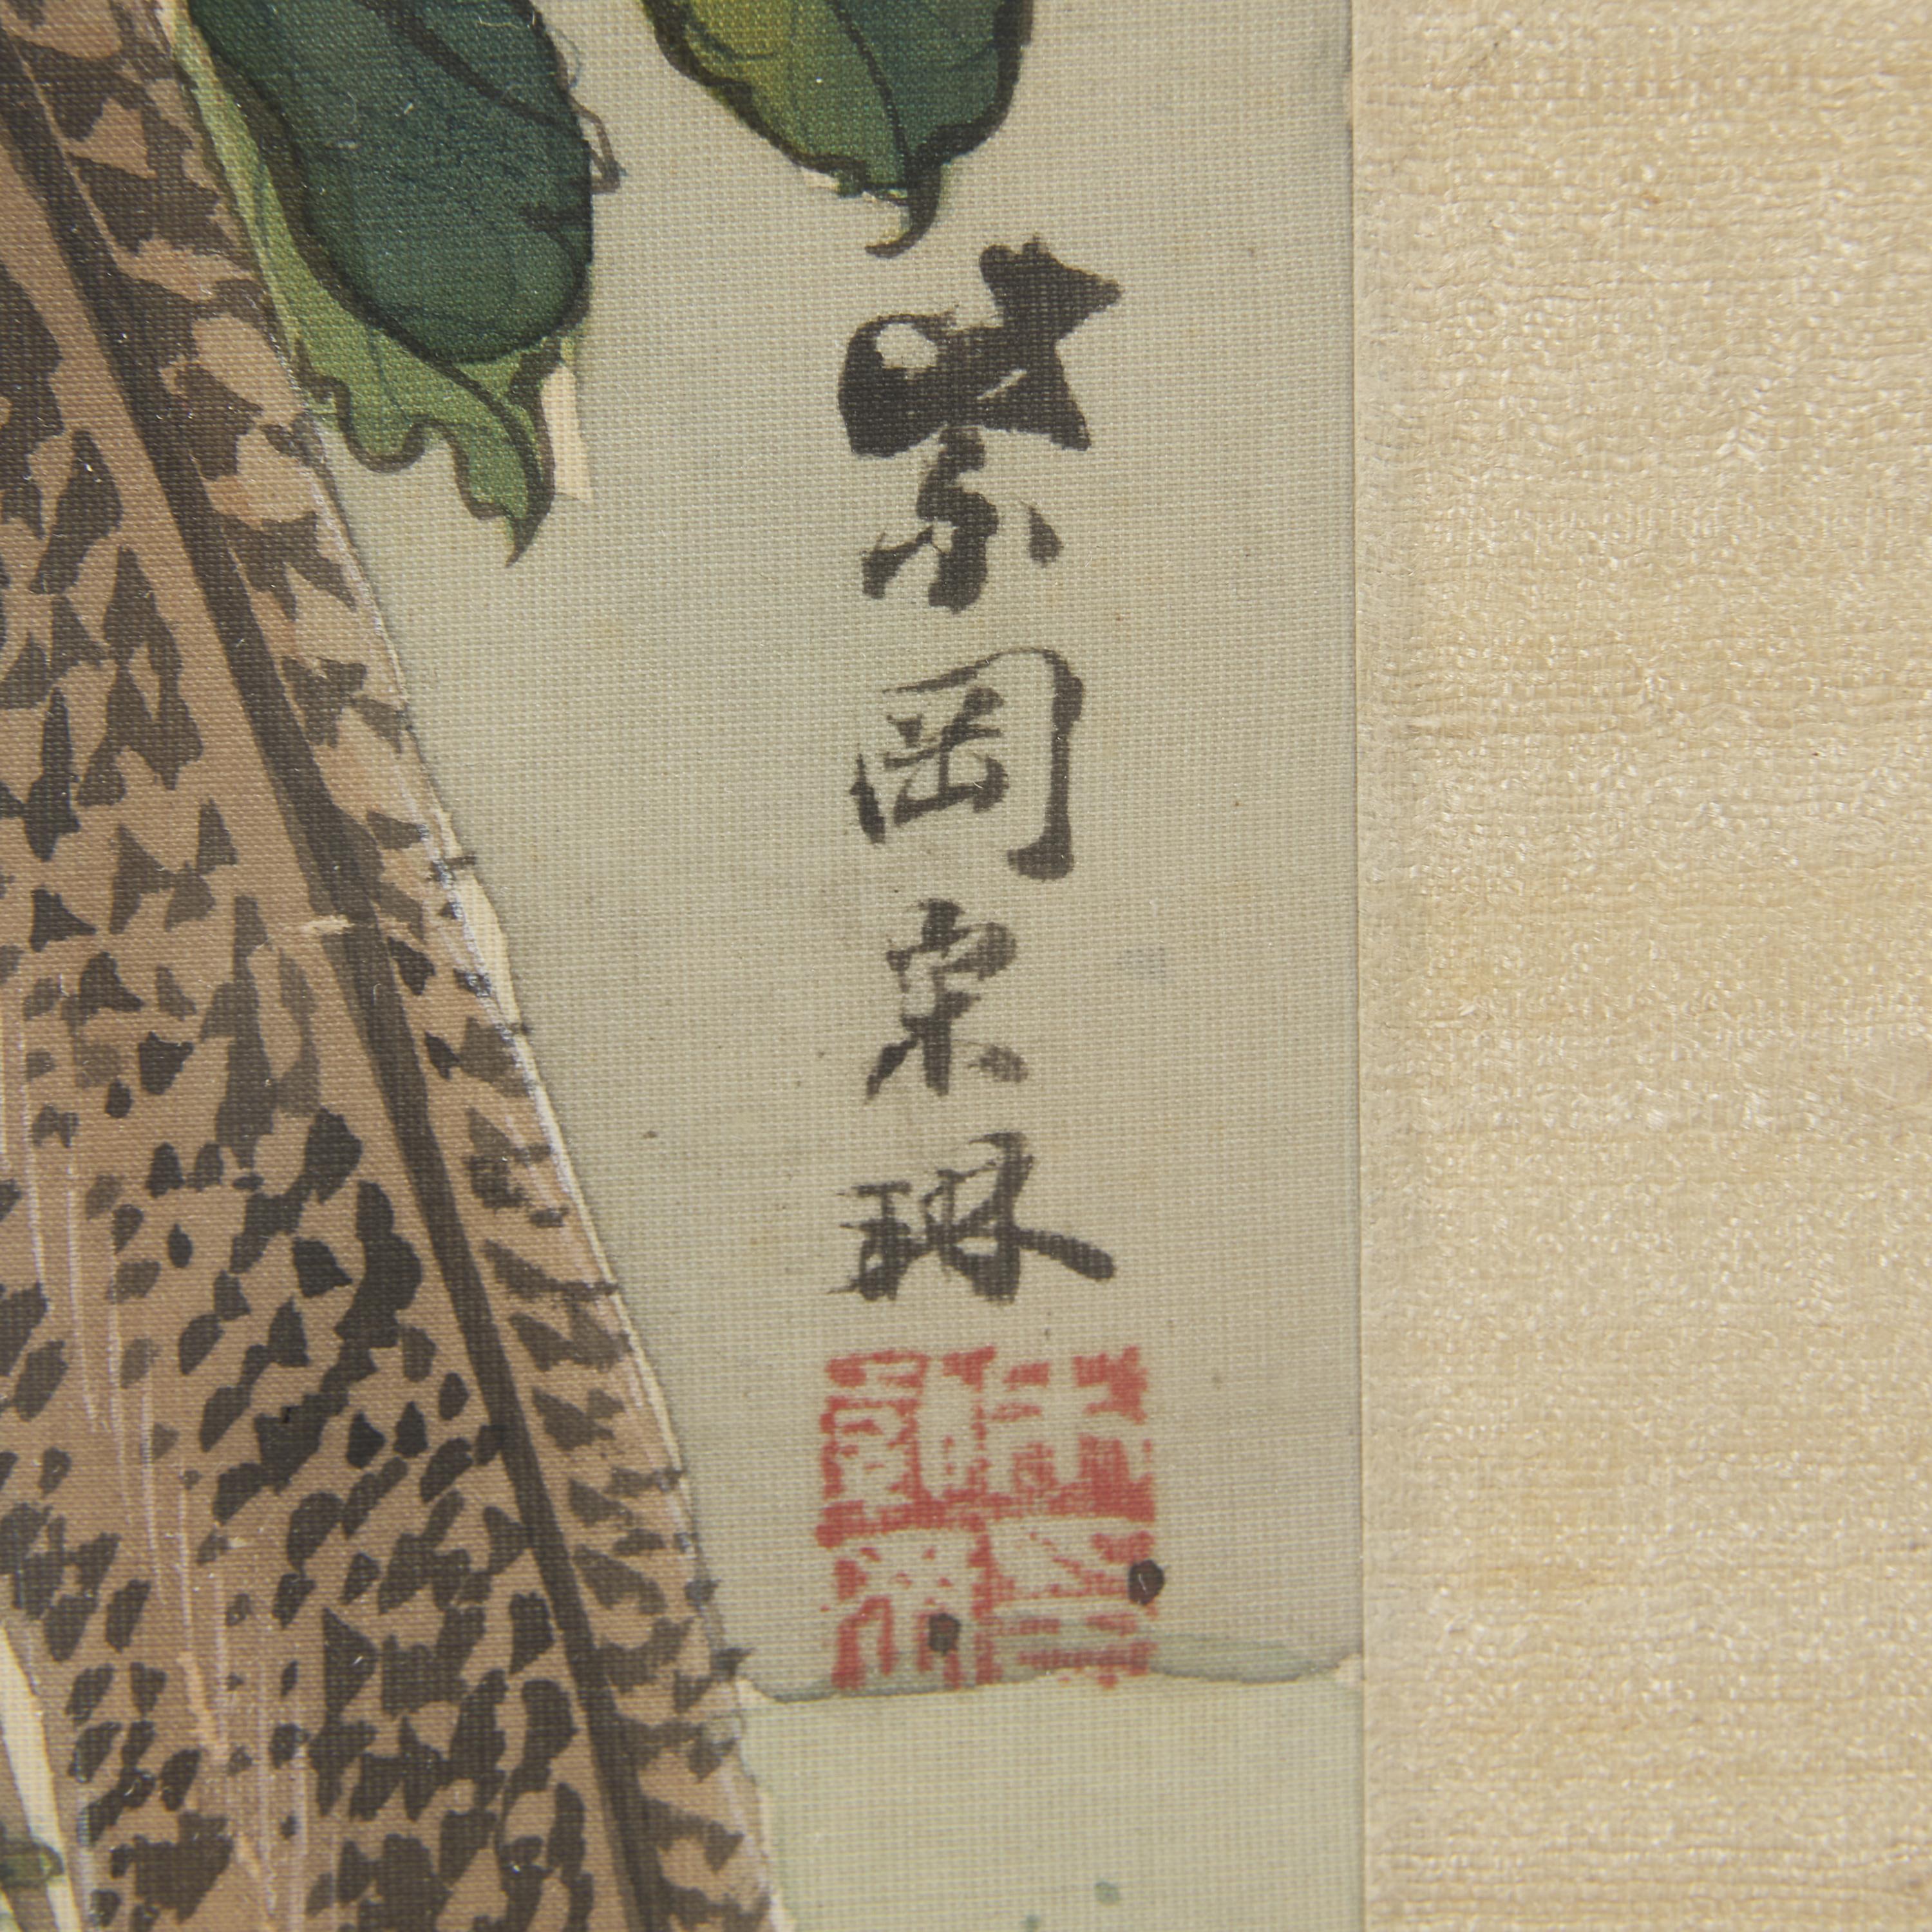 紫岡宋琳